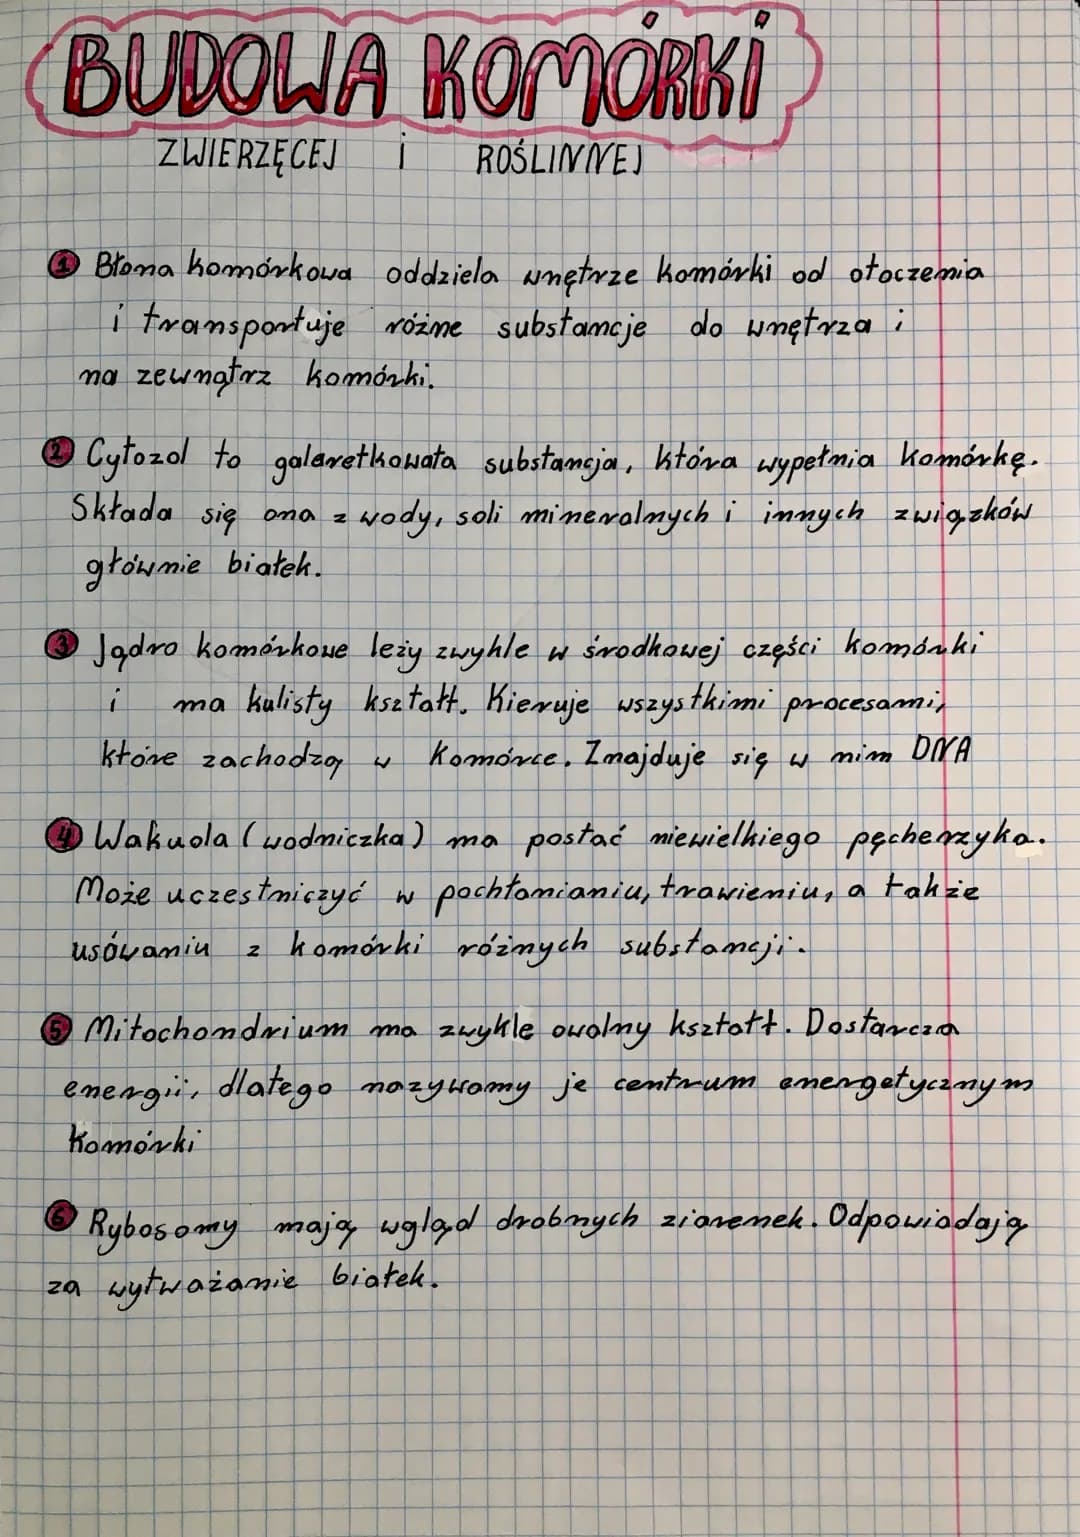 BUDOWA KOMÓRKI
ZWIERZĘCEJ i ROŚLINNEJ
1 Błona komórkowa oddziela wnętrze komórki od otoczenia
i transportuje różne substancje do wnętrza i
na zewnątrz komórki.
2 Cytozol to galaretkowata substancja, która wypełnia komórkę.
Składa się ona z wody, soli mineralnych i innych związków
głównie białek.
3 Jądro komórkowe leży zwykle w środkowej części komórki
i ma kulisty kształt. Kieruje wszystkimi procesami,
które zachodzą w komórce. Znajduje się w nim DNA
4 Wakuola (wodniczka) ma postać niewielkiego pęcherzyka.
Może uczestniczyć w pochłanianiu, trawieniu, a także
usówaniu z komórki różnych substancji.
5 Mitochondrium ma zwykle owalny kształt. Dostarcza
energii, dlatego nazywamy je centrum energetycznym
komórki
6 Rybosomy mają wgląd drobnych ziarenek. Odpowiadają
za wytważanie białek.